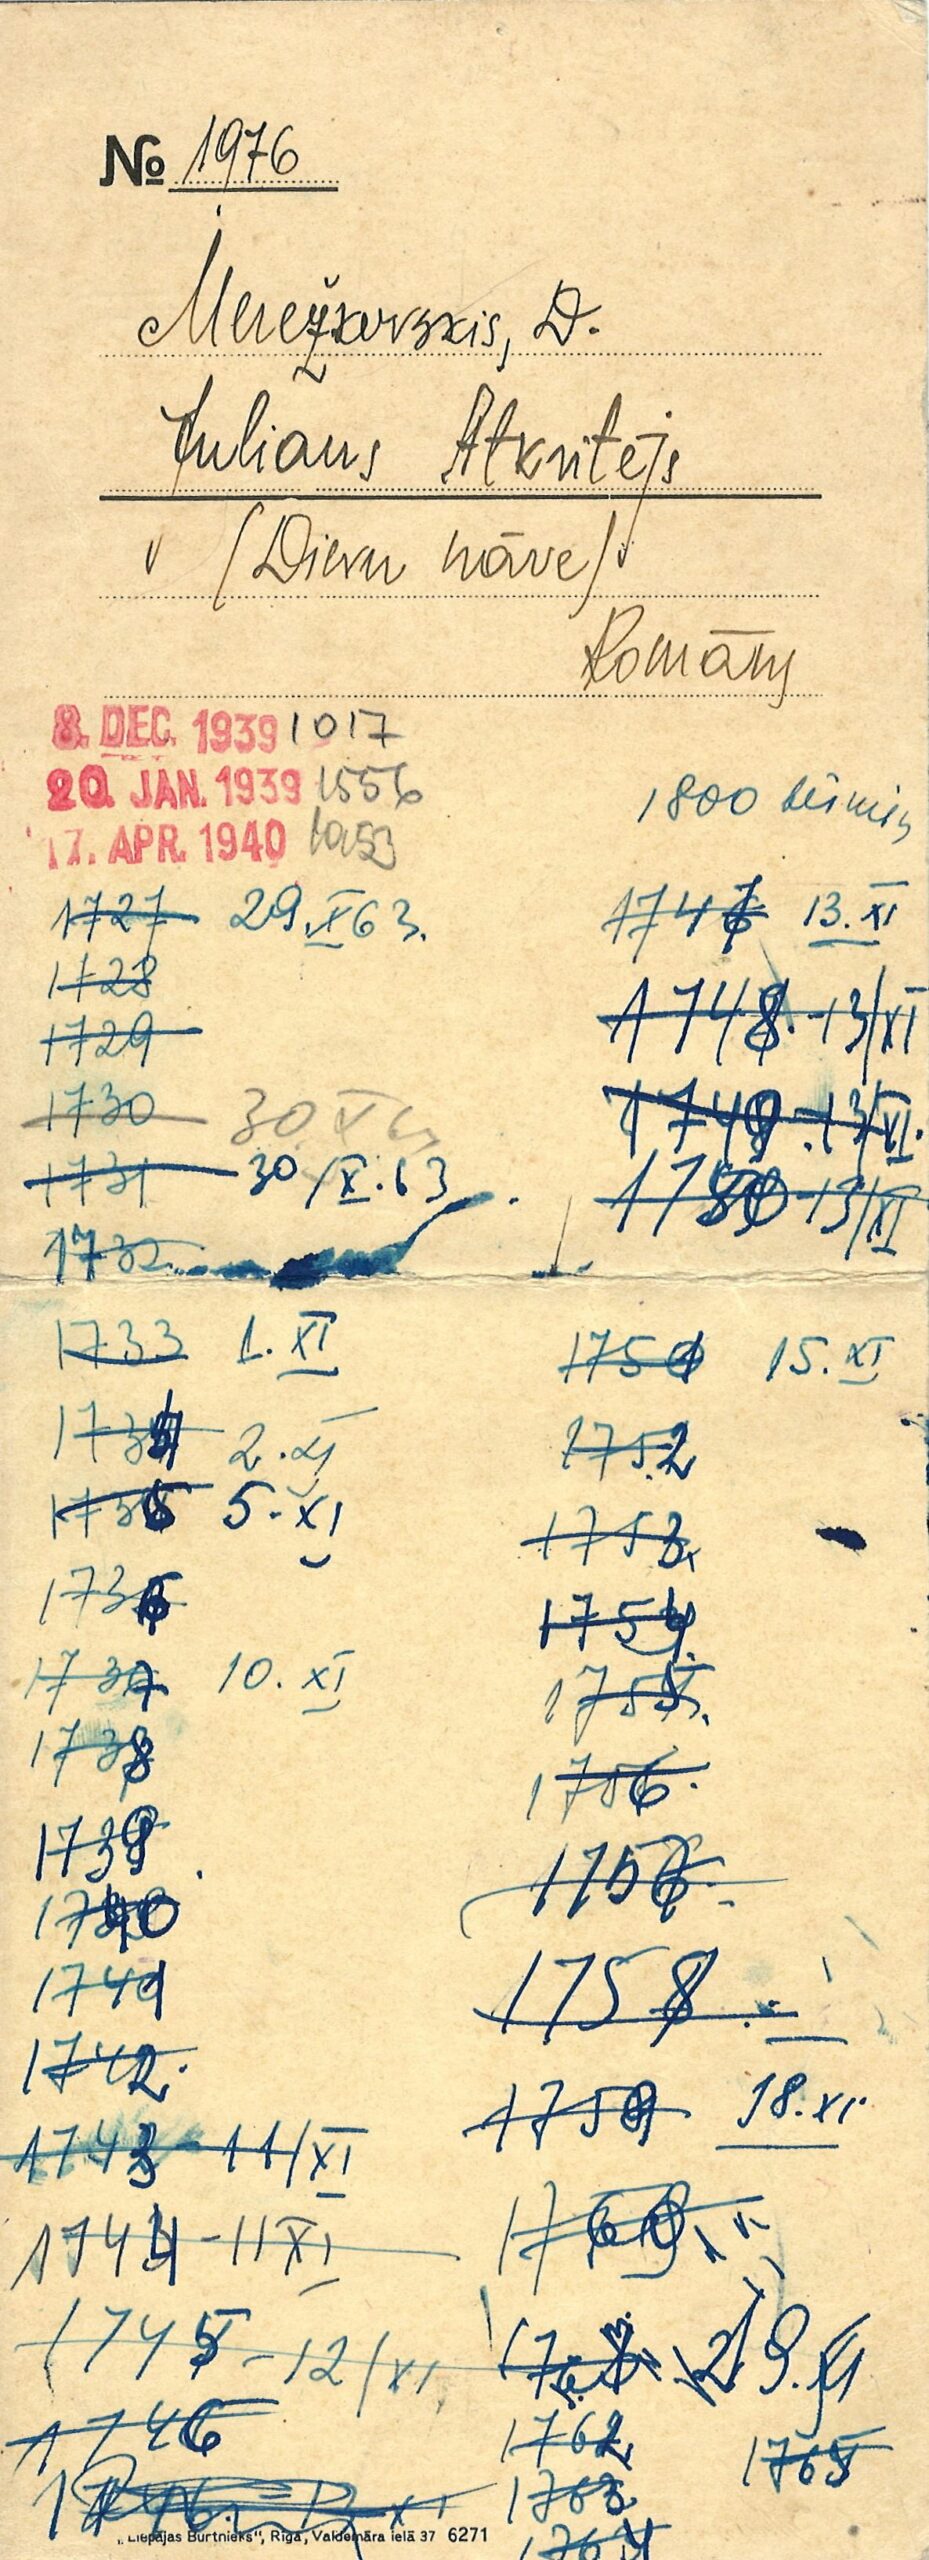 № 1976
Merežkovskis, D.
Julians Atkritējs
(Dievu nāve)
Romāns
8. DEC. 1939 1017
20. JAN. 1939 1556
17. APR. 1940
1800
1727 29.X 63.
1728
1729
1730 30 X
1731 30/X.63
1732
1733 1. XI
1734 2. XI
1735 5. XI
1736
1737 10. XI
1738
1739
1740
1741
1742.
1743 - 11/XI
1744 - 11 XI
1745 - 12/XI
1746
1747 13. XI
1748. -13/XI
1749 -13/XI.
1750 -13/XI
1751 15. XI
1752
1753.
1754.
1755.
1756.
1757.
1758
1759 18. XI
1760
1762.
1763
1764
1765
„Liepājas Burtnieks“, Rīgā, Valdemāra ielā 37 6271